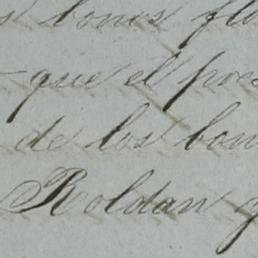 bones flo
que el pres
de los bon
Roldan q